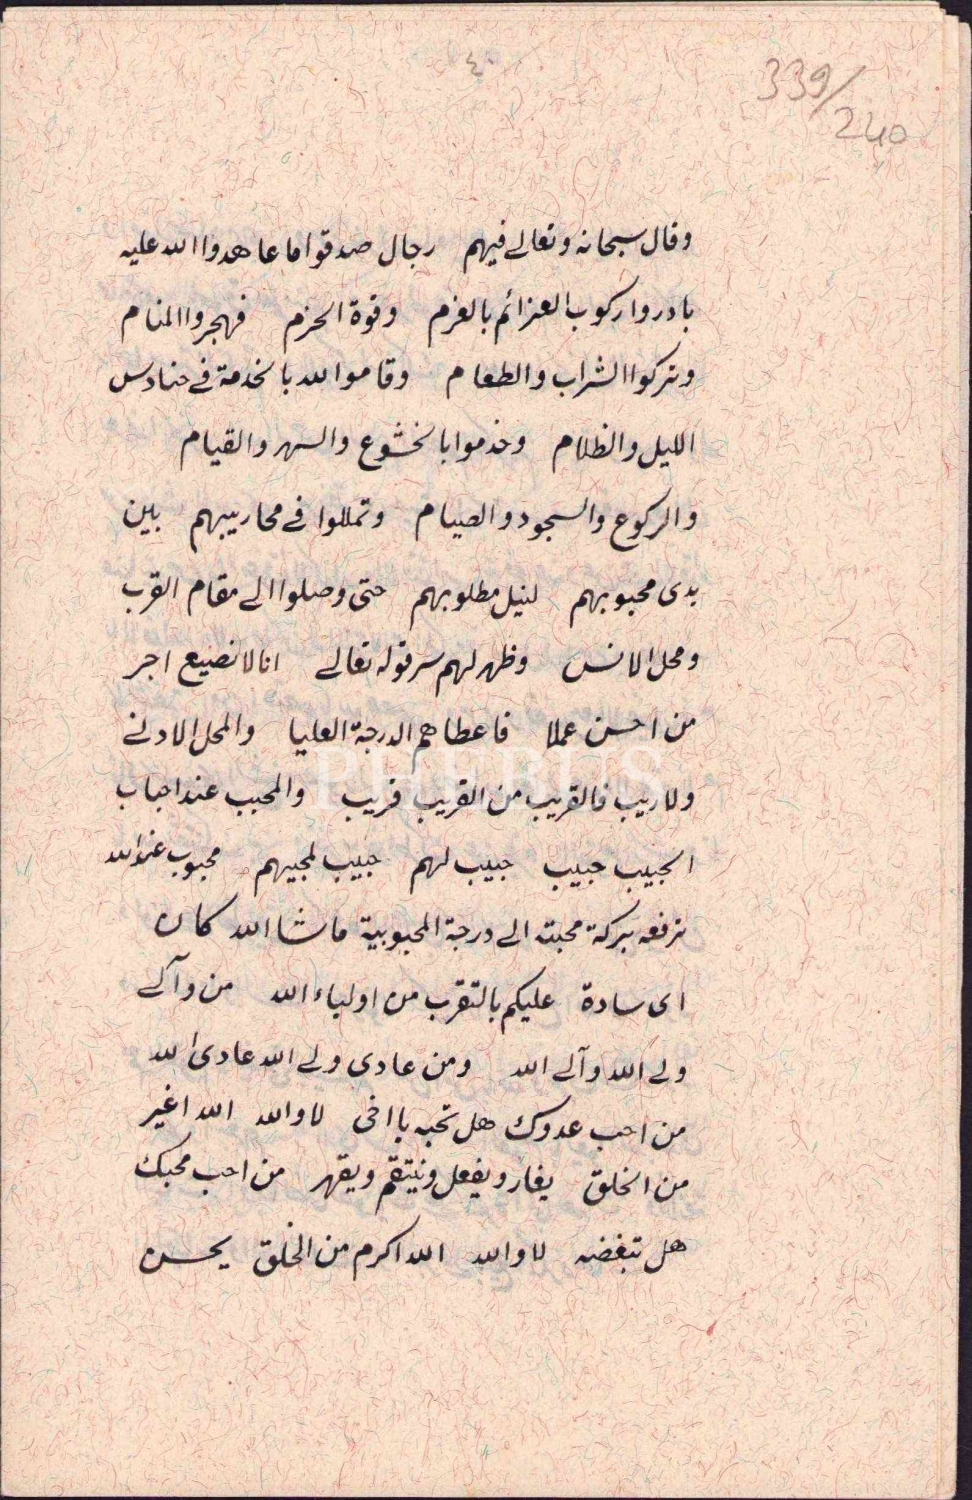 ٤٠
339/
240
وقال سبحانه وتعالى فيهم رجال صدقوا ما عاهدوا الله عليه
بادروا ركوب العزائم بالعزم وقوة الحزم فهجروا المنام
وتركوا الشراب والطعام وقاموا لله بالخدمة في حنادس
الليل والظلام وخدموا بالخشوع والسهر والقيام
والركوع والسجود والصيام وتمللوا في محاريبهم بين
يدى محبوبهم لنيل مطلوبهم حتى وصلوا الى مقام القرب
ومحل الانس وظهر لهم سر قوله تعالى انا لا نضيع اجر
من احسن عملا فاعطاهم الدرجة العليا والمحل الادنى
PHEBUS
ولا ريب فالقريب من القريب قريب والمحبب عند احباب
الحبيب حبيب حبيب لهم حبيب لمحبيهم محبوب عند الله
ترفعه بركة محبته الى درجة المحبوبية ما شا الله كان
اى سادة عليكم بالتقرب من اولياء الله من والى
ولى الله والى الله ومن عادى ولى الله عادى الله
من احب عدوك هل تحبه يا اخى لا والله الله اغير
من الخلق يغار ويفعل وينتقم ويقهر من احب محبك
هل تبغضه لا والله الله اكرم من الخلق يحسن